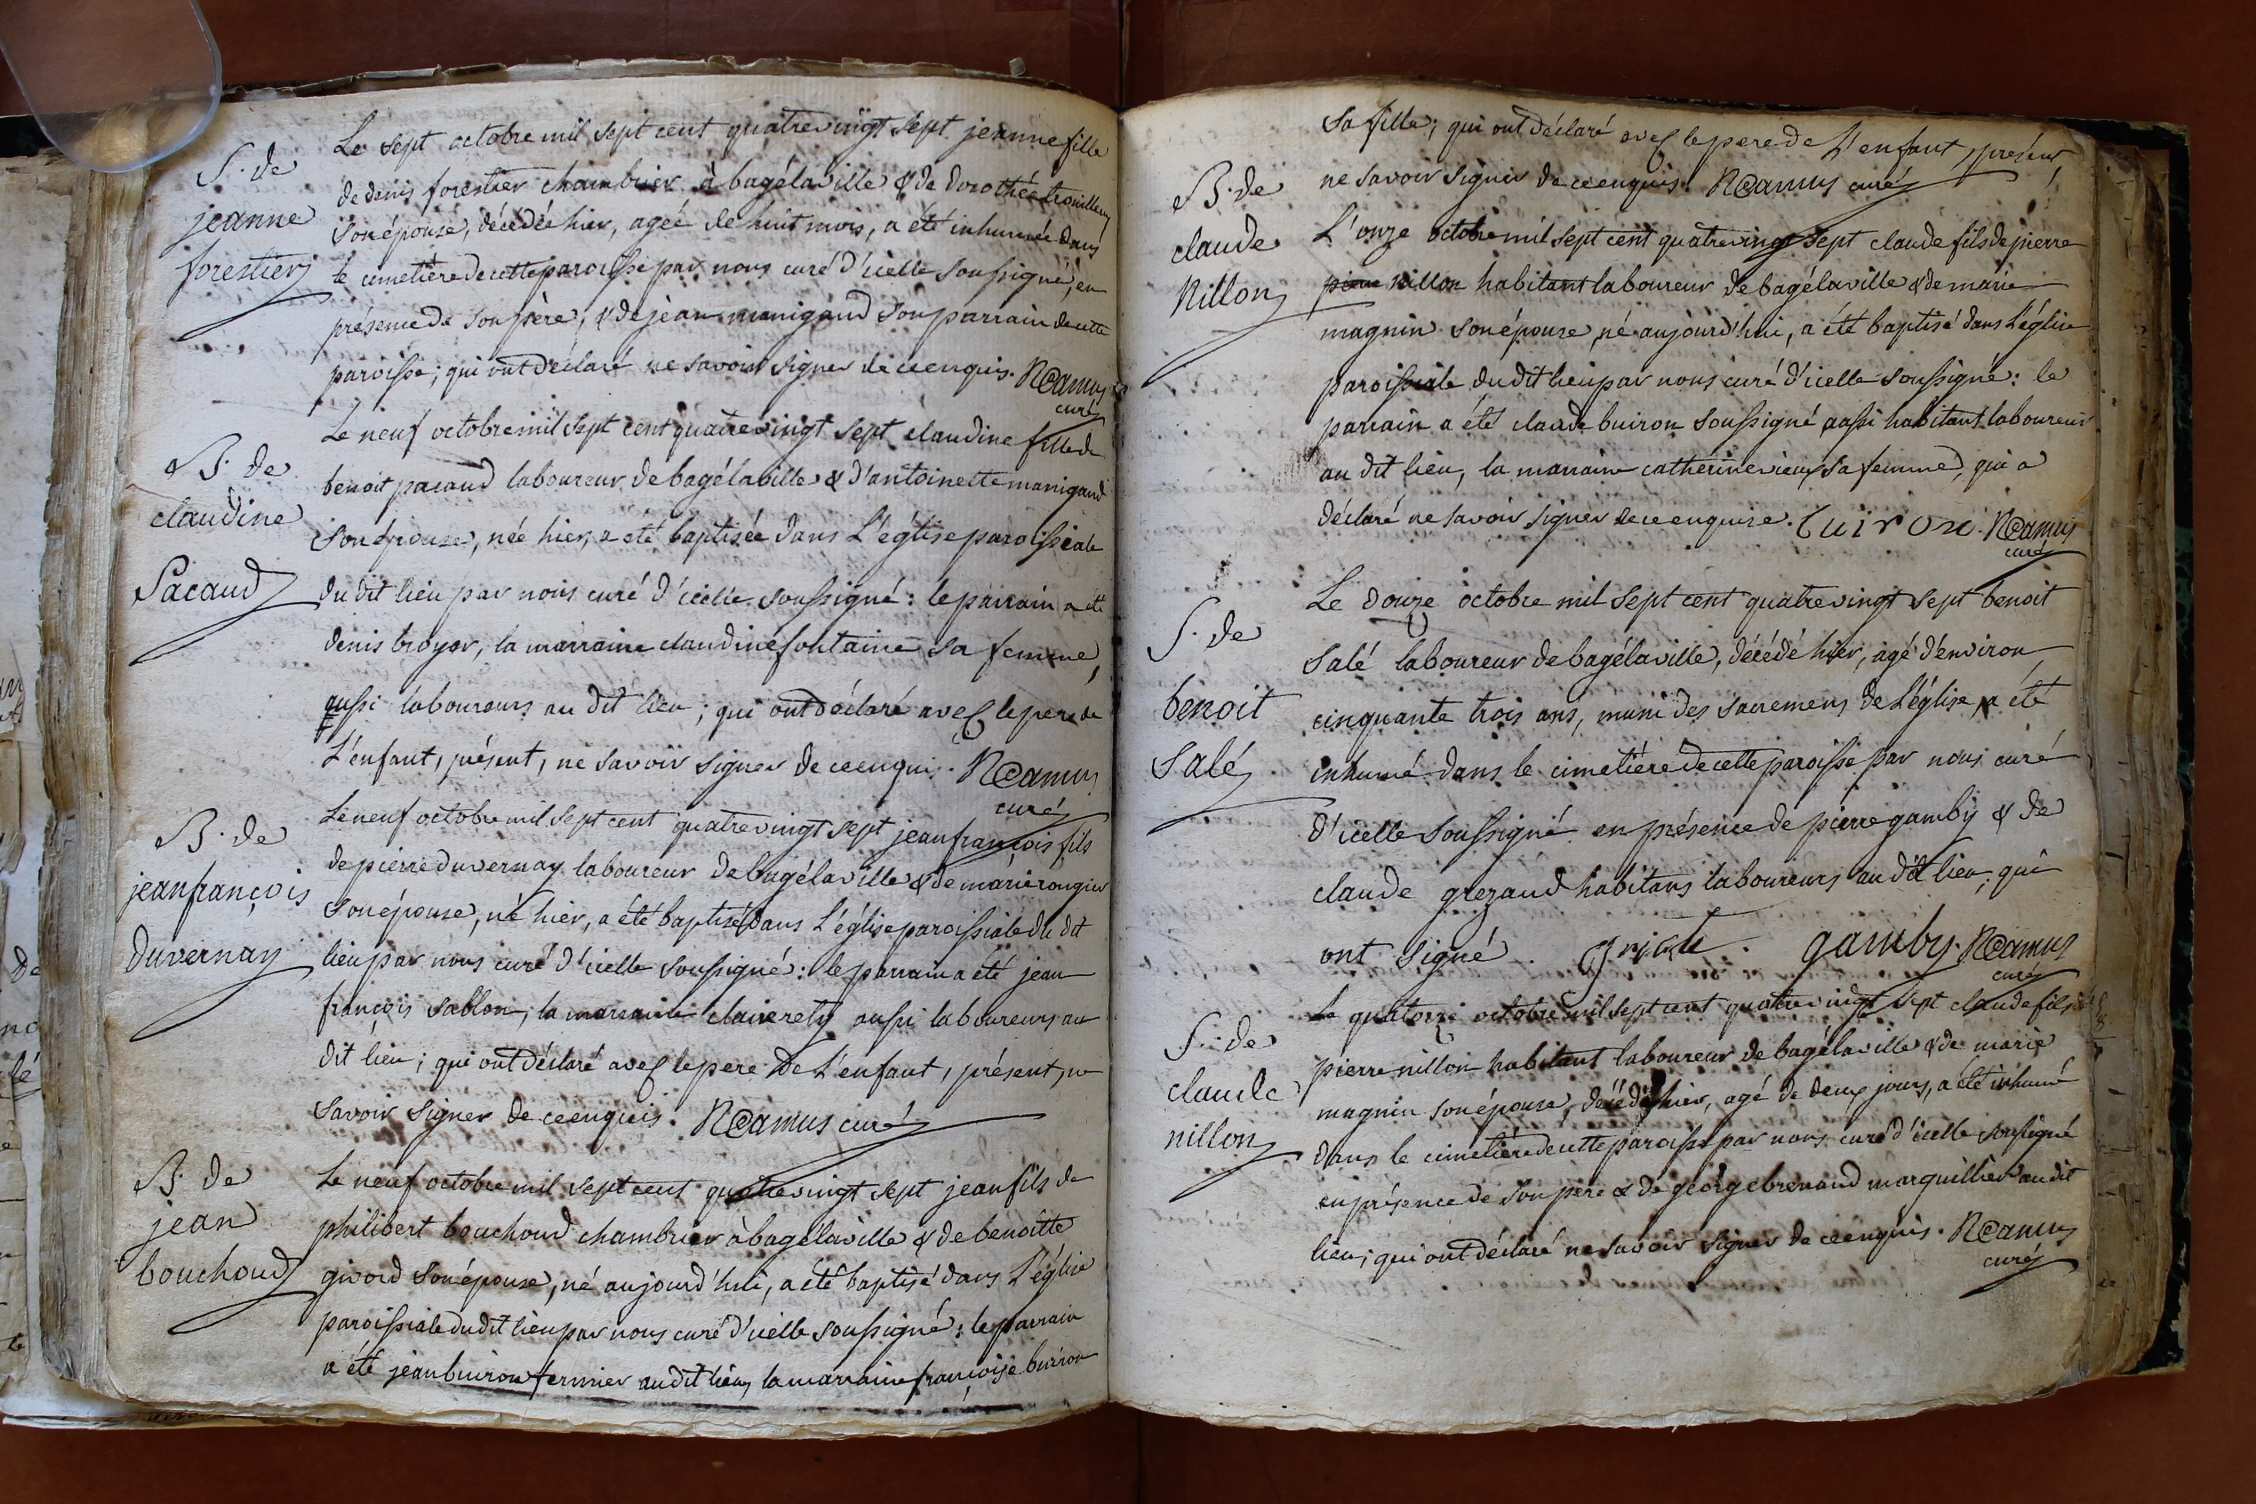 S. de
jeanne
forestier
Le sept octobre mil sept cent quatrevingt sept jeanne fille
de denis forestier chambrier à bagélaville & de dorothée trouilleux
son épouse, décédée hier, agée de huit mois, a été inhumée dans
le cimetière de cette paroisse par nous curé d'icelle soussigné, en
présence de son père, & de jean manigand son parrain de cette
paroisse; qui ont déclaré ne savoir signer de ce enquis. N Camus
curé
B. de
claudine
Pacaud
Le neuf octobre mil sept cent quatrevingt sept claudine fille de
benoit pacaud laboureur de bagélaville & d'antoinette manigand
son épouse, née hier, a été baptisée dans L'église paroissiale
du dit lieu par nous curé d'icelle soussigné: le parrain a été
denis broyer, la marraine claudine fontaine sa femme,
aussi laboureurs au dit lieu; qui ont déclaré avec le pere de
L'enfant, présent, ne savoir signer de ce enquis. N Camus
curé
B. de
jean françois
duvernay
Le neuf octobre mil sept cent quatrevingt sept jean françois fils
de pierre duvernay laboureur de bagélaville & de marie rongier
son épouse, né hier, a été baptisé dans L'église paroissiale du dit
lieu par nous curé d'icelle soussigné: le parrain a été jean
françois sablon, la marraine claire rety aussi laboureurs au
dit lieu; qui ont déclaré avec le pere de L'enfant, présent, ne
savoir signer de ce enquis. N Camus curé
B. de
jean
bouchoud
Le neuf octobre mil sept cent quatrevingt sept jean fils de
philibert bouchoud chambrier à bagélaville & de benoitte
givord son épouse, né aujourd'hui, a été baptisé dans L'église
paroissiale du dit lieu par nous curé d'icelle soussigné: le parrain
a été jean buiron fermier au dit lieu, la marraine françoise buiron
sa fille; qui ont déclaré avec le pere de L'enfant, présent,
ne savoir signer de ce enquis. N Camus curé
B. de
claude
Nillon
L'onze octobre mil sept cent quatrevingt sept claude fils de pierre
pierre nillon habitant laboureur de bagélaville & de marie
magnin son épouse, né aujourd'hui, a été baptisé dans L'église
paroissiale du dit lieu par nous curé d'icelle soussigné: le
parrain a été claude buiron soussigné aussi habitant laboureur
au dit lieu, la marraine catherine vieux sa femme, qui a
déclaré ne savoir signer de ce enquise. buiron. N Camus
curé
S. de
benoit
salé
Le douze octobre mil sept cent quatrevingt sept benoit
salé laboureur de bagélaville, décédé hier, agé d'environ
cinquante trois ans, muni des sacremens de L'église, a été
inhumé dans le cimetière de cette paroisse par nous curé
d'icelle soussigné en présence de pierre gamby & de
claude grezaud habitans laboureurs au dit lieu, qui
ont signé. gamby. N Camus
curé
S. de
claude
nillon
Le quatorze octobre mil sept cent quatrevingt sept claude fils de
pierre nillon habitant laboureur de bagélaville & de marie
magnin son épouse, décédé hier, agé de deux jours, a été inhumé
dans le cimetière de cette paroisse par nous curé d'icelle soussigné
en présence de son père & de george brenand marguillier au dit
lieu; qui ont déclaré ne savoir signer de ce enquis. N Camus
curé